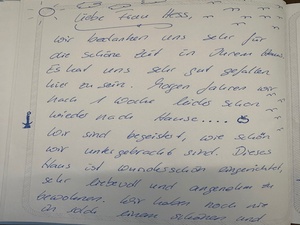 Liebe Frau Hess,
wir bedanken uns sehr für
die schöne Zeit in Ihrem Haus
Es hat uns sehr gut gefallen
hier zu sein. Morgen fahren wir
nach 1 Woche leider schon
wieder nach Hause....
Wir sind begeistert, wie schön
wir untergebracht sind. Dieses
Haus ist wunderschön eingerichtet,
sehr liebevoll und angenehm zu
bewohnen. Wir haben noch nie
in solch einem schönen und